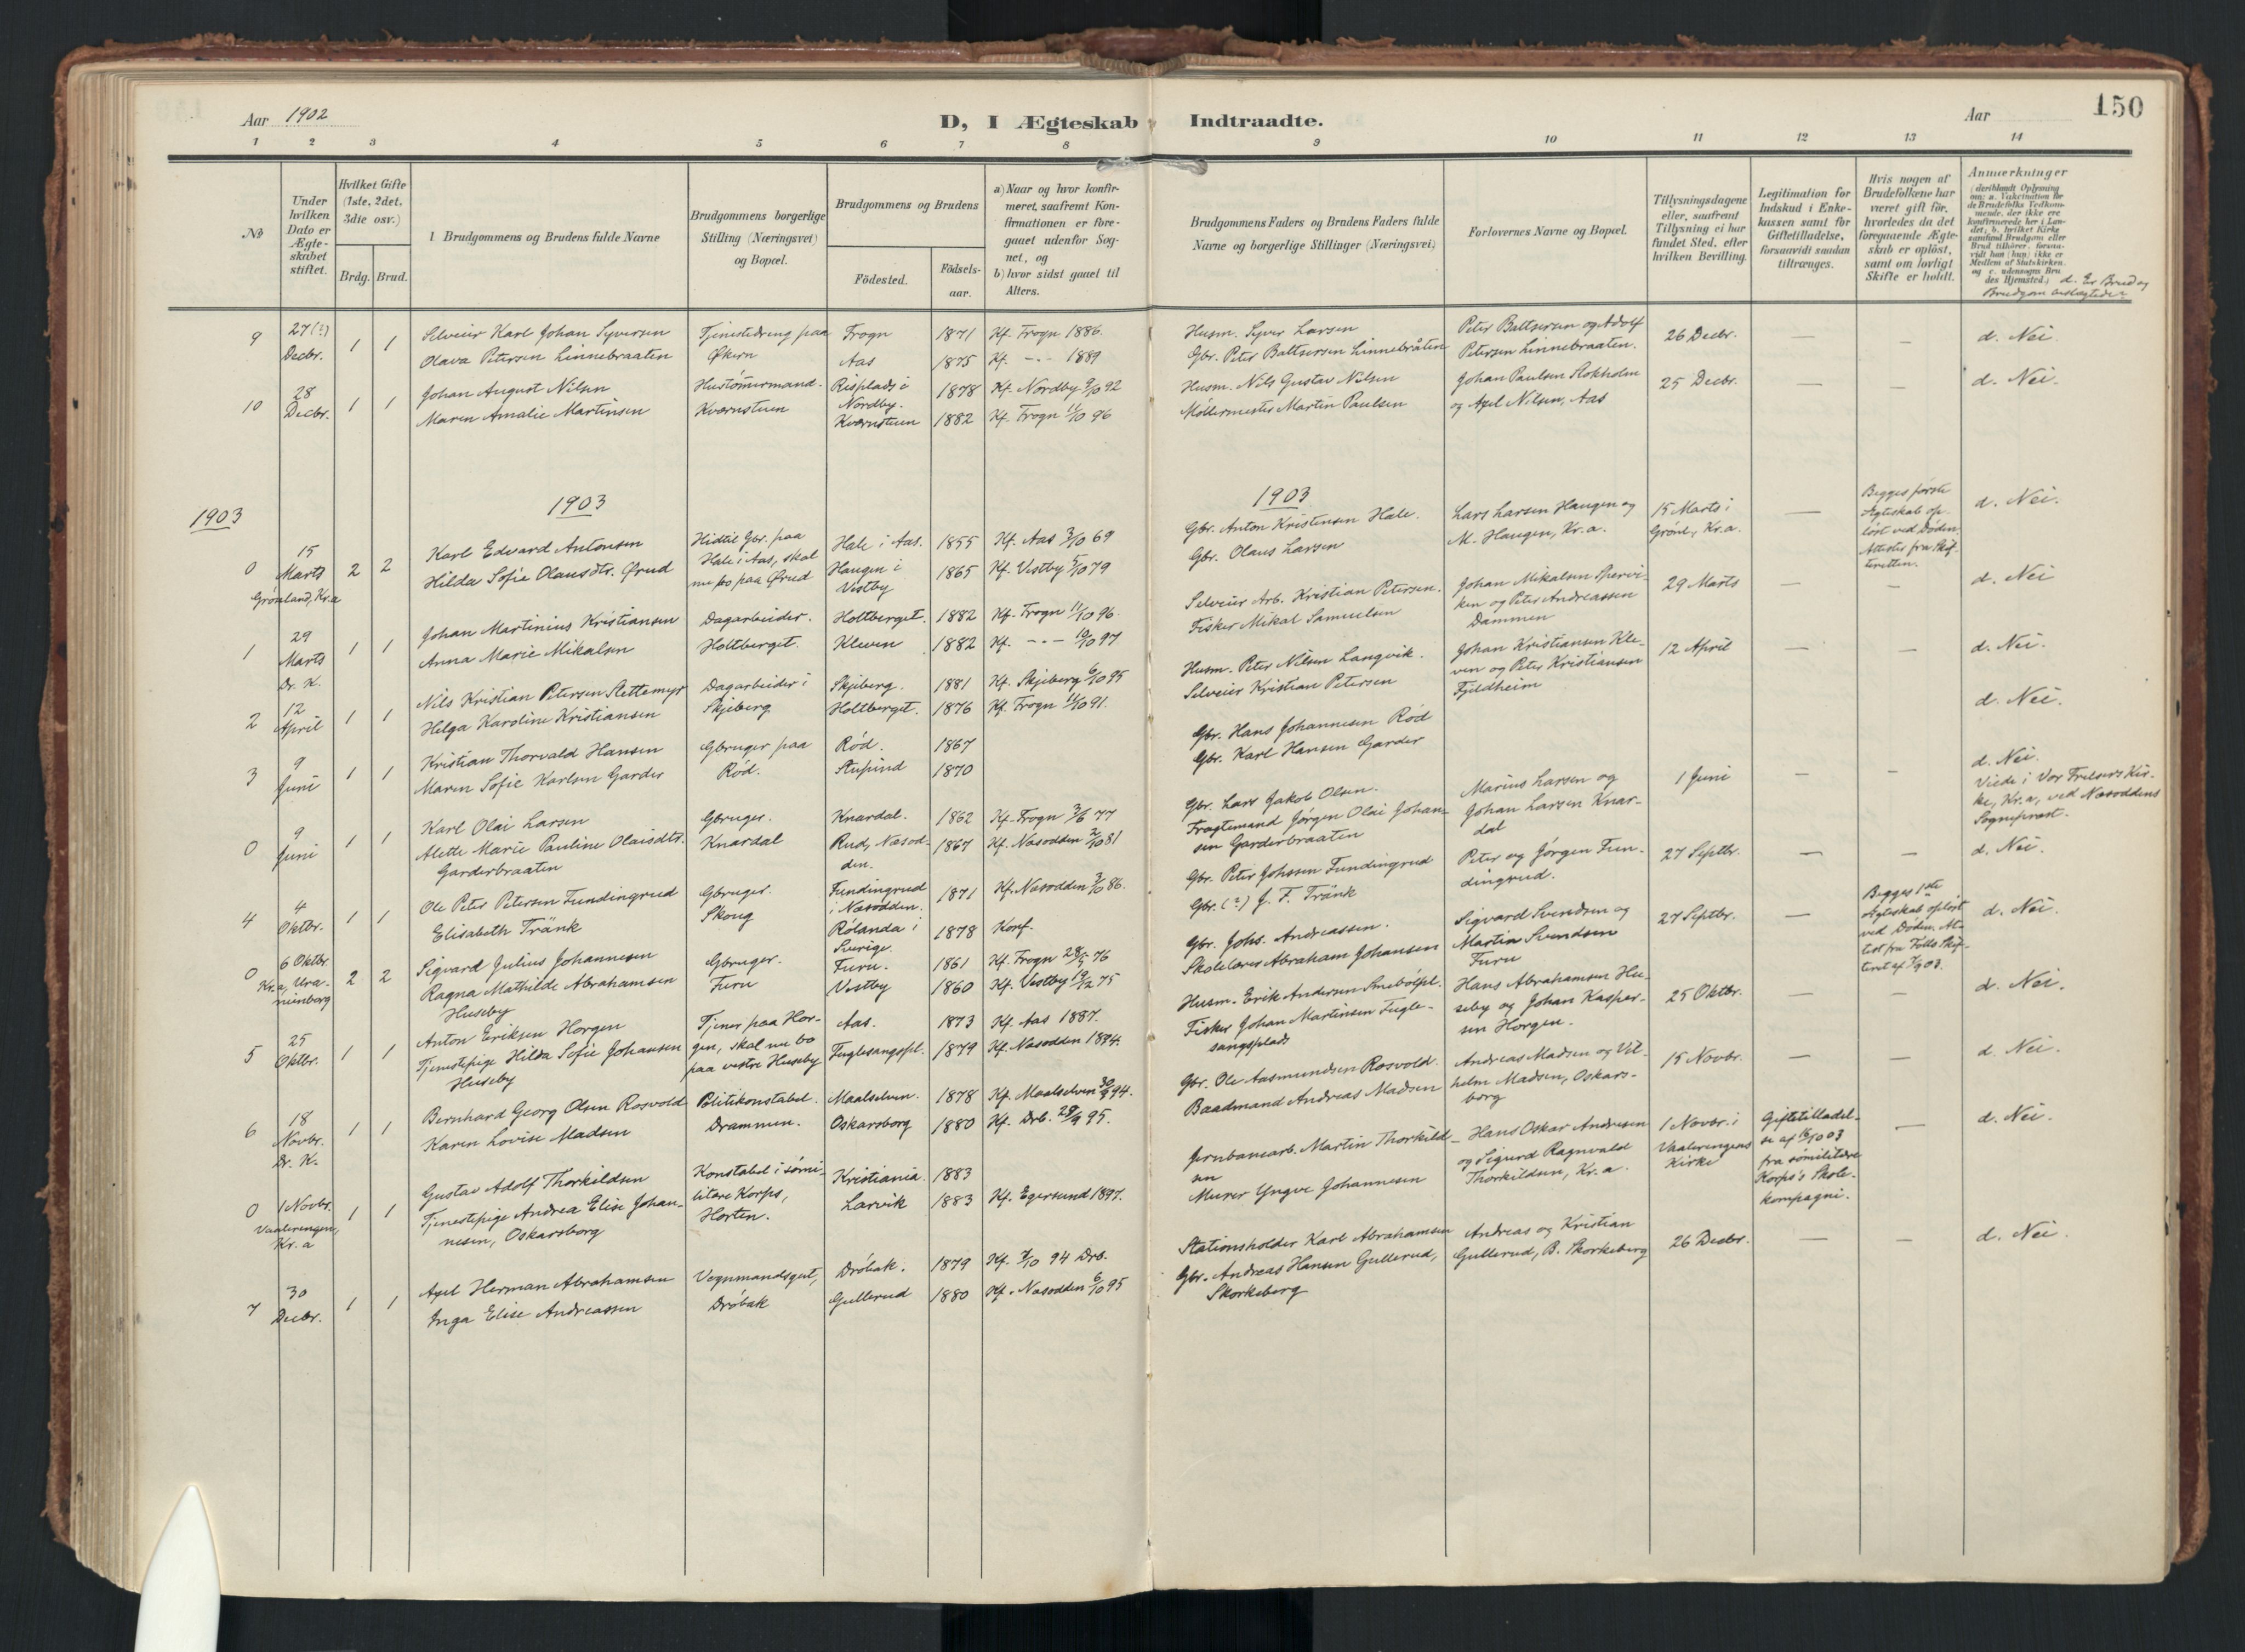 Aar 1902
D, I Ægteskab Indtraadte.
Aar
150
1 2 3 4 5 6 7 8 9 10 11 12 13 14
№
Under hvilken Dato er Ægteskabet stiftet.
Hvilket Gifte (1ste, 2det, 3die osv.)
Brdg. Brud.
1 Brudgommens og Brudens fulde Navne
Brudgommens borgerlige Stilling (Næringsvei) og Bopæl.
Brudgommens og Brudens
Födested.
Födselsaar.
a) Naar og hvor konfirmeret, saafremt Konfirmationen er foregaaet udenfor Sognet, og
b) hvor sidst gaaet til Alters.
Brudgommens Faders og Brudens Faders fulde Navne og borgerlige Stillinger (Næringsvei)
Forlovernes Navne og Bopæl.
Tillysningsdagene eller, saafremt Tillysning ei har fundet Sted, efter hvilken Bevilling.
Legitimation for Indskud i Enkekassen samt for Giftetilladelse, forsaavidt saadan tiltrænges.
Hvis nogen af Brudefolkene har været gift för, hvorledes da det foregaaende Ægteskab er oplöst, samt om lovligt Skifte er holdt.
Anmærkninger
(deriblandt Oplysning om: a. Vakcination for de Brudefolks Vedkommende, der ikke ere konfirmerede her i Landet; b. hvilket Kirkesamfund Brudgom eller Brud tilhörer, forsaavidt han (hun) ikke er Medlem af Statskirken, og c. udensogns Brudes Hjemsted.)
d. Er Brud og Brudgom beslægtede?
9 27(?) Decbr. 1 1
Selveier Karl Johan Syversen Tjenestedreng paa Frogn 1871 Kf. Frogn 1886. Husm. Syver Larsen Peter Baltsersen og Adolf 26 Decbr. — — d. Nei.
Olava Petersen Linnebraaten Økern Aas 1875 Kf. -"- 1889 Gbr. Peter Baltsersen Linnebråten Petersen Linnebraaten.
10 28 Decbr. 1 1
Johan August Nilsen Hustömmermand. Risplads i Nordby. 1878 Kf. Nordby 9/10 92 Husm. Nils Gustav Nilsen Johan Paulsen Stokholm 25 Decbr. — — d. Nei.
Maren Amalie Martinsen Kværnstuen Kværnstuen 1882 Kf. Frogn 11/10 96 Møllermester Martin Paulsen og Axel Nilsen, Aas
1903
1903
1903
0 15 Marts Grønland, Kr.a 2 2
Karl Edvard Antonsen Hidtil Gbr. paa Hale i Aas, skal nu bo paa Ørud Hale i Aas. 1855 Kf. Aas 3/10 69 Gbr. Anton Kristensen Hale. Lars Larsen Haugen og 15 Marts i — Begges første Ægteskab opløst ved Døden. Attester fra Skifteretten. d. Nei.
Hilda Sofie Olausdtr. Ørud Haugen i Vestby 1865 Kf. Vestby 5/10 79 Gbr. Olaus Larsen M. Haugen, Kr.a. Grønl., Kr.a.
1 29 Marts Dr. K. 1 1
Johan Martinius Kristiansen Dagarbeider. Holtberget. 1882 Kf. Frogn 11/10 96. Selveier Arb. Kristian Petersen. Johan Mikalsen Spervi- 29 Marts — — d. Nei
Anna Marie Mikalsen Holtberget. Kleven 1882 Kf. -"- 10/10 97 Fisker Mikal Samuelsen ken og Peter Andreassen Dammen
2 12 April 1 1
Nils Kristian Petersen Slettemyr Dagarbeider i Skjeberg. 1881 Kf. Skjeberg 6/10 95 Husm. Peter Nilsen Langvik. Johan Kristiansen Kle- 12 April — — d. Nei.
Helga Karoline Kristiansen Skjeberg Holtberget. 1876 Kf. Frogn 11/10 91. Selveier Kristian Petersen ven og Peter Kristiansen Fjeldheim
3 9 Juni 1 1
Kristian Thorvald Hansen Gbruger paa Rød. 1867 Gbr. Hans Johannesen Rød d. Nei.
Maren Sofie Karlsen Garder Rød. Stupind 1870 Gbr. Karl Hansen Garder
0 9 Juni 1 1
Karl Olai Larsen Gbruger. Knardal. 1862 Kf. Frogn 3/6 77 Gbr. Lars Jakob Olsen. Marius Larsen og 1 Juni — — d. Nei. Viede i Vor Frelsers Kirke, Kr.a, ved Næsoddens Sogneprest.
Alette Marie Pauline Olaisdtr. Garderbraaten Knardal Rud, Næsodden. 1867 Kf. Næsodden 2/10 81 Fragtemand Jørgen Olai Johansen Garderbraaten Johan Larsen Knardal
4 4 Oktbr. 1 1
Ole Peter Petersen Fundingrud Gbruger. Fundingrud i Næsodden. 1871 Kf. Næsodden 3/10 86. Gbr. Peter Johssen Fundingrud Peter og Jørgen Fun- 27 Septbr. — — d. Nei.
Elisabeth Tränk Skoug Rølanda i Sverige. 1878 Konf. Gbr. (?) J. F. Tränk dingrud.
0 6 Oktbr. Kr.a, Uranienborg 2 2
Sigvard Julius Johannesen Gbruger. Furu. 1861 Kf. Frogn 28/5 76 Gbr. Johs. Andreassen. Sigvard Svendsen og 27 Septbr. — Begges 1ste Ægteskab opløst ved Døden. Attest fra Follo Skifteret af 7/9 03. d. Nei.
Ragna Mathilde Abrahamsen Huseby Furu Vestby 1860 Kf. Vestby 19/12 75 Skolelærer Abraham Johansen Martin Svendsen Furu
5 25 Oktbr. 1 1
Anton Eriksen Horgen Tjener paa Horgen, skal nu bo paa vestre Huseby Aas. 1873 Kf. Aas 1887. Husm. Erik Andersen Smebölpl. Hans Abrahamsen Hu- 25 Oktbr. — — d. Nei.
Tjenestepige Hilda Sofie Johansen Huseby Fuglesangspl. 1879 Kf. Næsodden 1894. Fisker Johan Martinsen Fuglesangsplads seby og Johan Kaspersen Horgen.
6 18 Novbr. Dr. K. 1 1
Bernhard Georg Olsen Rosvold Politikonstabel. Maalselven. 1878 Kf. Maalselven 30/9 94. Gbr. Ole Aasmundsen Rosvold. Andreas Madsen og Vil- 15 Novbr. — — d. Nei.
Karen Lovise Madsen Drammen. Oskarsborg 1880 Kf. Drb. 29/9 95. Baadmand Andreas Madsen helm Madsen, Oskarsborg
0 1 Novbr. Vaalerengen, Kr.a 1 1
Gustav Adolf Thorkildsen Konstabel i sömilitære Korps, Horten. Kristiania. 1883 Jernbanearb. Martin Thorkildsen Hans Oskar Andresen 1 Novbr. i Vaalerengens Kirke Giftetilladelse af 16/10 03 fra sömilitære Korps's Skolekompagni. — d. Nei.
Tjenestepige Andrea Elise Johannesen, Oskarsborg Larvik 1883 Kf. Egersund 1897. Murer Yngve Johannesen og Sigurd Ragnvald Thorkildsen, Kr.a.
7 30 Decbr. 1 1
Axel Herman Abrahamsen Vognmandsgut, Drøbak. 1879 Kf. 7/10 94 Drb. Stationsholder Karl Abrahamsen Andreas og Kristian 26 Decbr. — — d. Nei.
Inga Elise Andreassen Drøbak Gullerud 1880 Kf. Næsodden 6/10 95 Gbr. Andreas Hansen Gullerud, Skorkeberg Gullerud, B. Skorkeberg